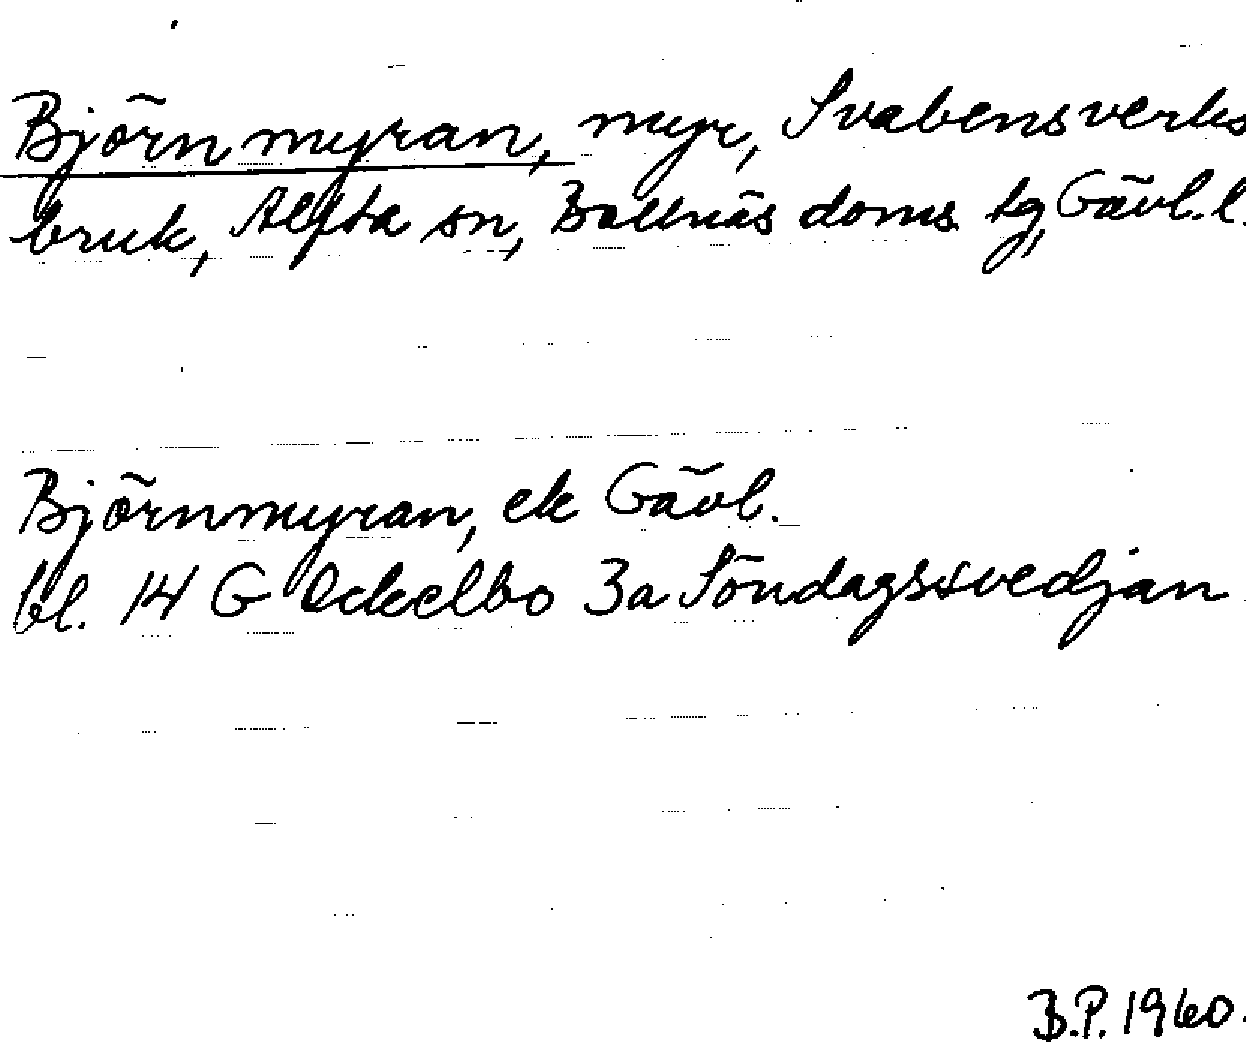 Björnmyran, myr, Svabensverks
bruk, Alfta sn, Bollnäs doms. tg, Gävl. l.
Björnmyran, ek Gävl.
bl. 14 G Ockelbo 3a Söndagssvedjan
B.P. 1960.